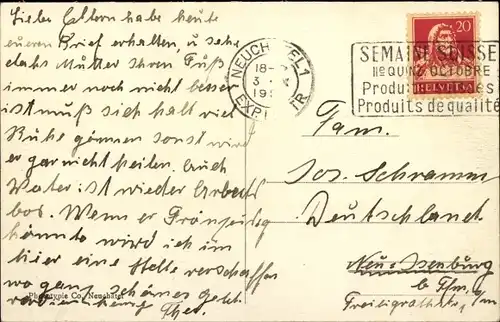 Lieber Eltern habe heute
eueren Brief erhalten, u sehe
dass Mutter Ihren Fuß
immer noch nicht besser
ist muß sich halt viel
Ruhe gönnen sonst wird
er gar nicht heilen. Auch
Vater ist wieder Arbeits
los. Wenn er Französisg
könnte wird ich im
hier eine Stelle verschaffen
wo ganz schönes Geld
Phototypie Co., Neuchâtel
NEUCHATEL 1
18-
3
EXP
20
HELVETIA
SEMAINE SUISSE
IIe QUINZ. OCTOBRE
Produits
Produits de qualité
Fam.
Jos. Schramm
Deutschland
Neu-Isenburg
b Ffm.
Freiligrathstr.